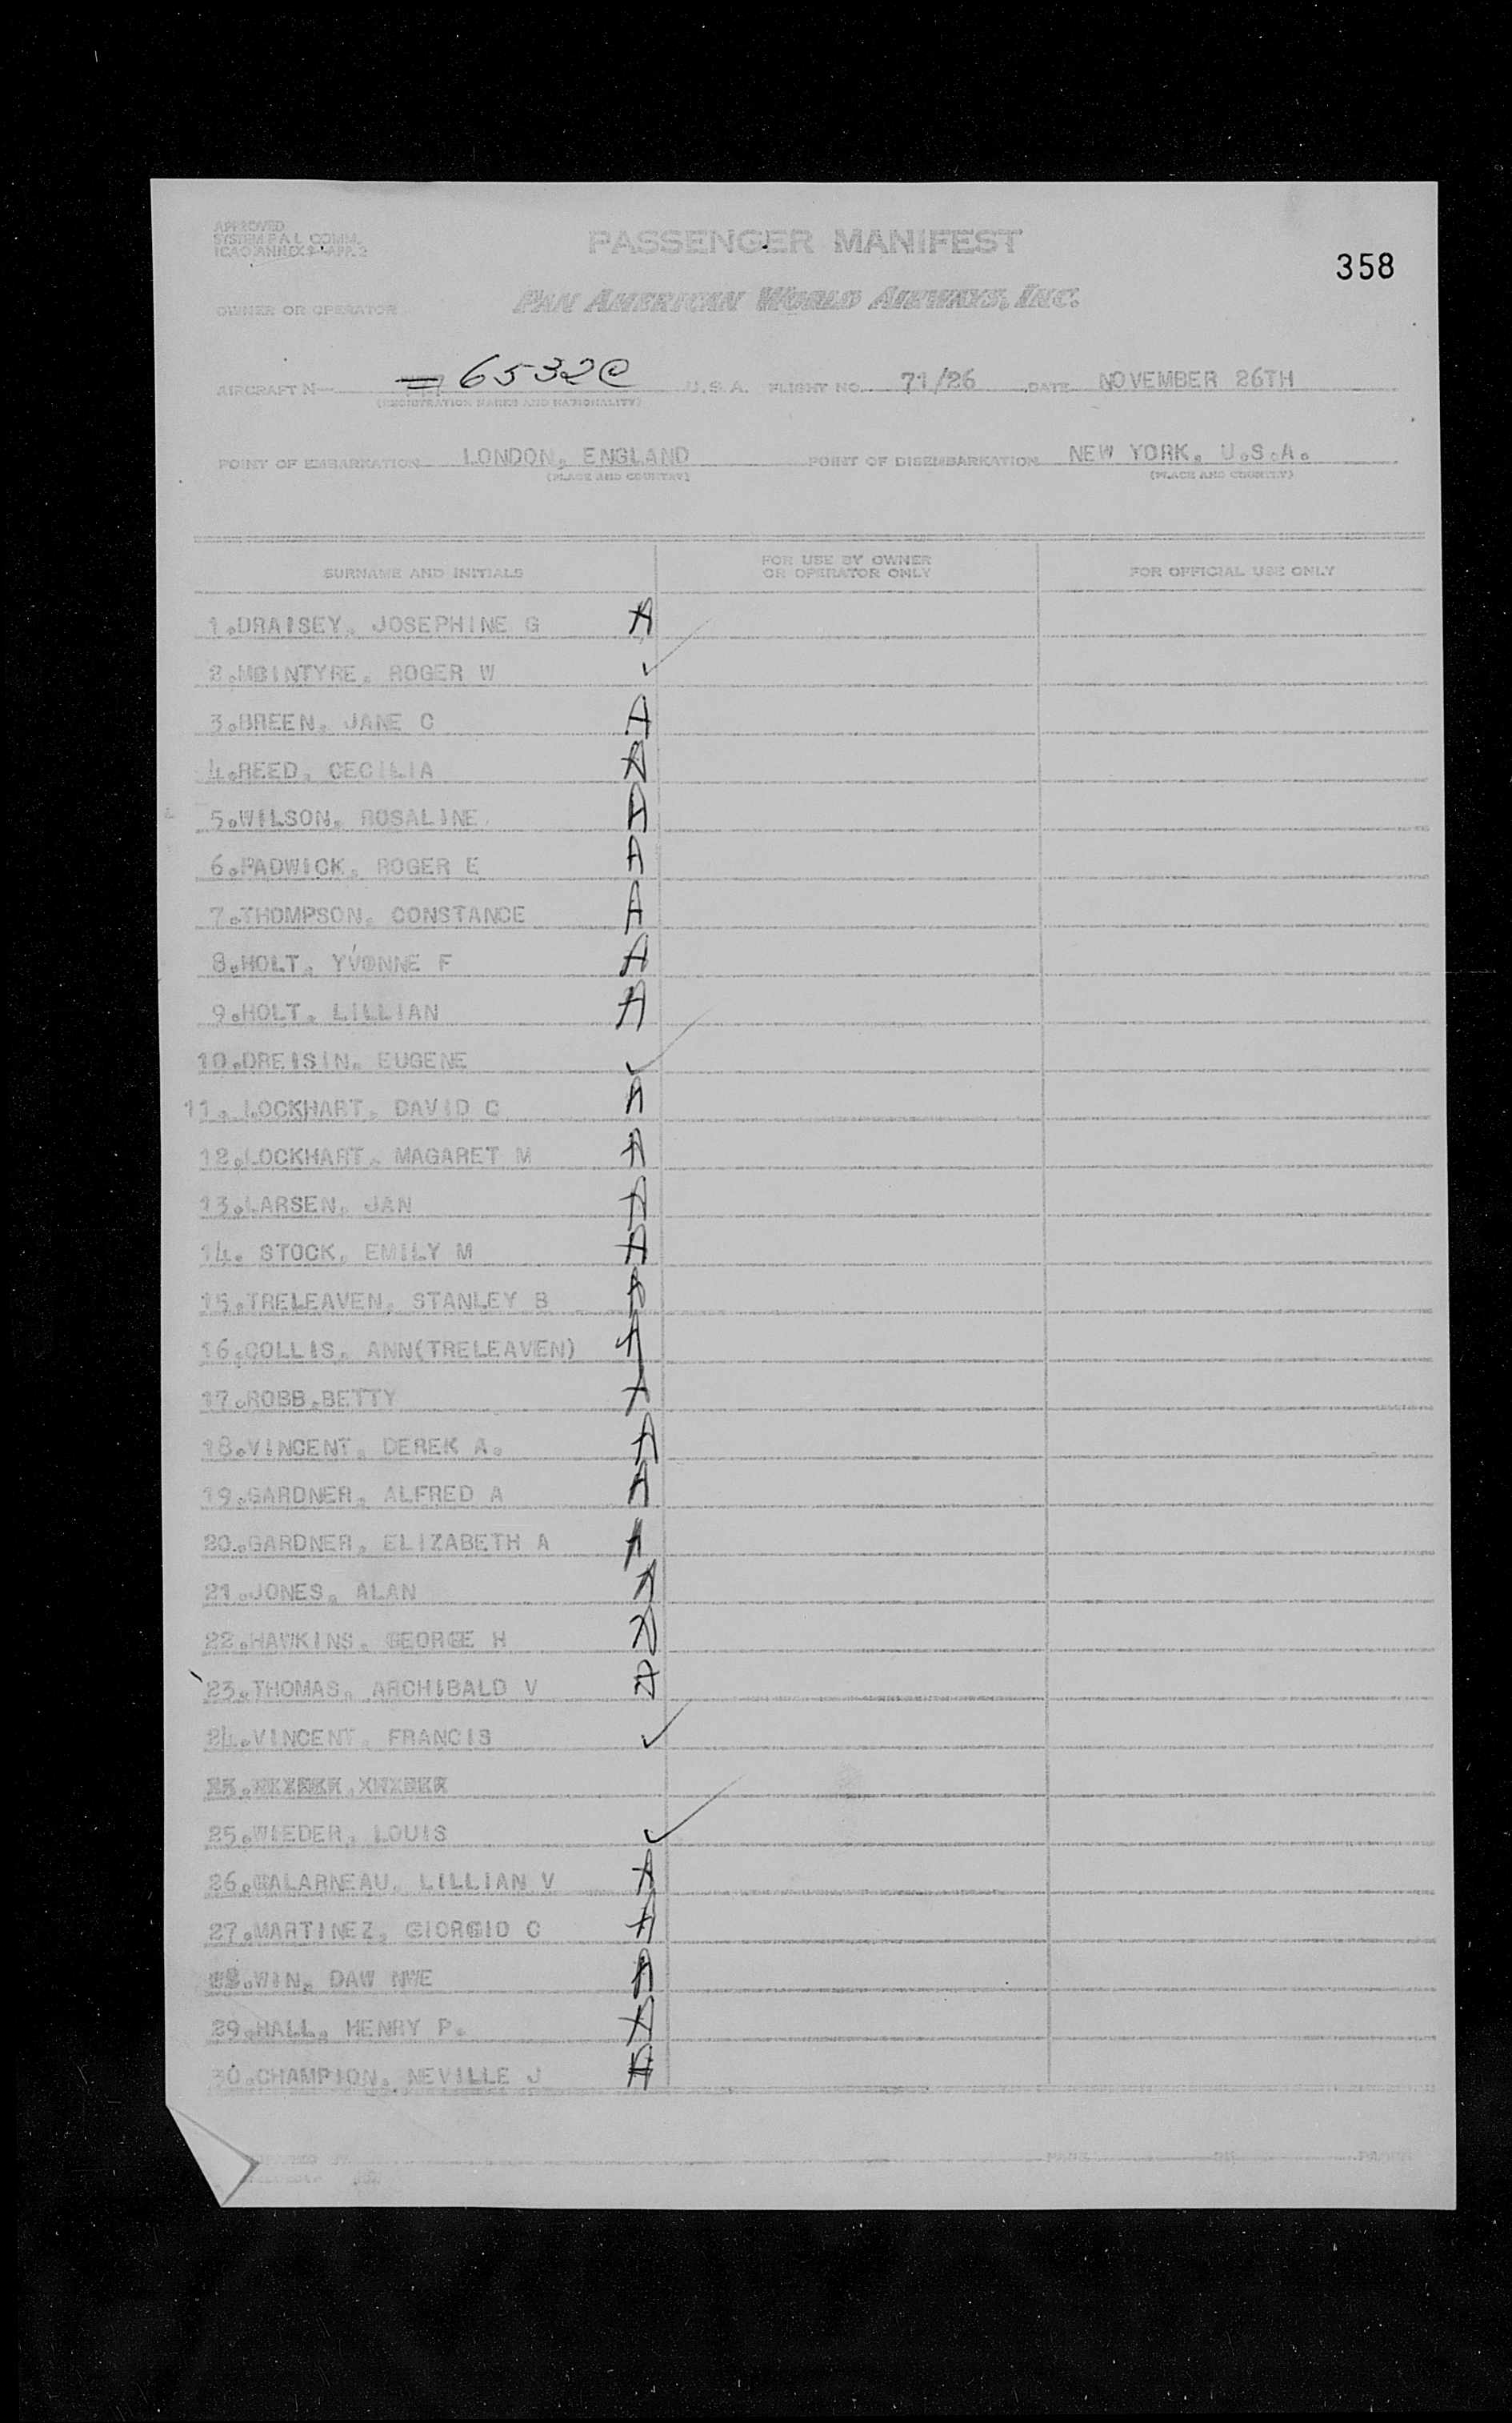 APPROVED
SYSTEM F A L COMM.
ICAO ANNEX 9-APP. 2
PASSENGER MANIFEST
358
OWNER OR OPERATOR
PAN AMERICAN WORLD AIRWAYS, INC.
AIRCRAFT N— 6532C U.S.A. FLIGHT NO. 71/26 DATE NOVEMBER 26TH
(REGISTRATION MARKS AND NATIONALITY)
POINT OF EMBARKATION LONDON, ENGLAND POINT OF DISEMBARKATION NEW YORK, U.S.A.
(PLACE AND COUNTRY) (PLACE AND COUNTRY)
SURNAME AND INITIALS FOR USE BY OWNER OR OPERATOR ONLY FOR OFFICIAL USE ONLY
1.DRAISEY, JOSEPHINE G A
2.MCINTYRE, ROGER W ✓
3.BREEN, JANE C A
4.REED, CECILIA A
5.WILSON, ROSALINE A
6.PADWICK, ROGER E A
7.THOMPSON, CONSTANCE A
8.HOLT, YVONNE F A
9.HOLT, LILLIAN A
10.DREISIN, EUGENE ✓
11. LOCKHART, DAVID C A
12.LOCKHART, MAGARET M A
13.LARSEN, JAN A
14. STOCK, EMILY M A
15.TRELEAVEN, STANLEY B A
16.COLLIS, ANN(TRELEAVEN) A
17.ROBB,BETTY A
18.VINCENT, DEREK A. A
19.GARDNER, ALFRED A A
20.GARDNER, ELIZABETH A A
21.JONES, ALAN A
22.HAWKINS, GEORGE H A
23.THOMAS, ARCHIBALD V A
24.VINCENT, FRANCIS ✓
25.WIEDER, LOUIS ✓
26.GALARNEAU, LILLIAN V A
27.MARTINEZ, GIORGIO C A
28.WIN, DAW NWE A
29.HALL, HENRY P. A
30.CHAMPION, NEVILLE J A